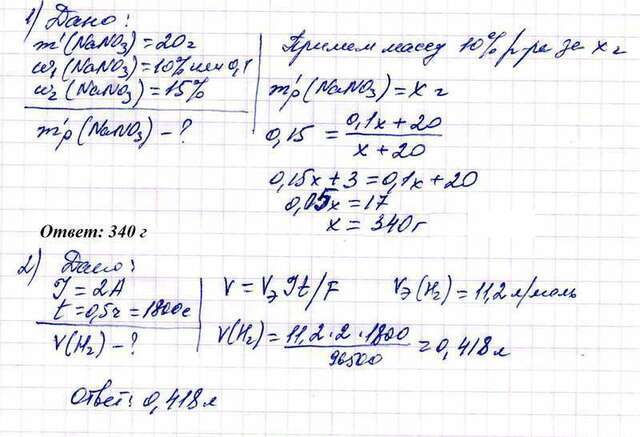 1) Дано:
m'(NaNO₃) = 20г
ω₁(NaNO₃) = 10% или 0,1
ω₂(NaNO₃) = 15%
m'р(NaNO₃) – ?
Примем массу 10% р-ра за x г
m'р(NaNO₃) = x г
0,15 = (0,1x + 20)/(x + 20)
0,15x + 3 = 0,1x + 20
0,05x = 17
x = 340г
Ответ: 340 г
2) Дано:
I = 2A
t = 0,5ч = 1800с
V(H₂) – ?
V = Vэ It/F
Vэ(H₂) = 11,2 л/моль
V(H₂) = (11,2·2·1800)/96500 = 0,418л
Ответ: 0,418л